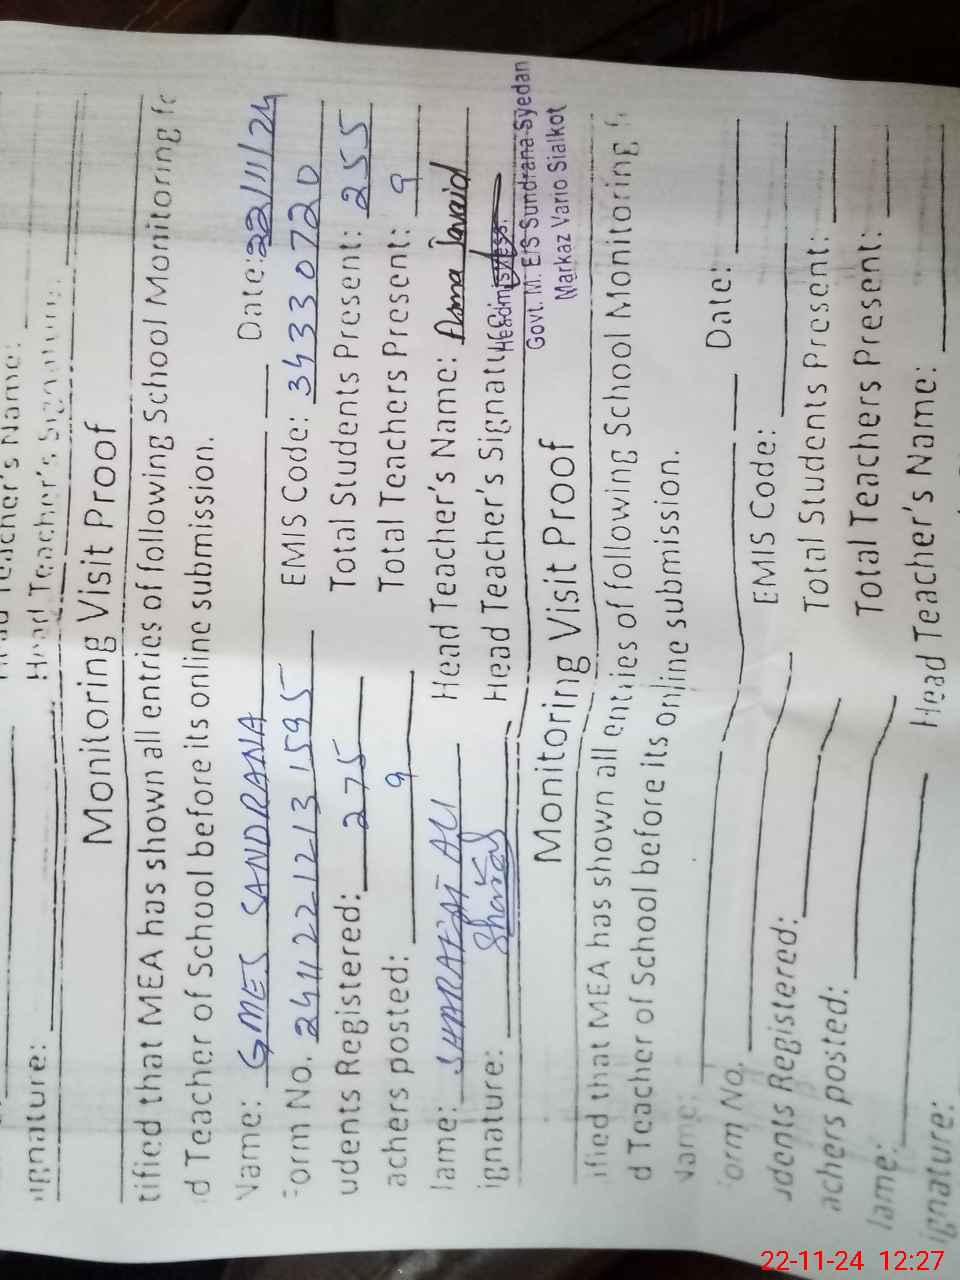 Head Teacher's Name:
ignature: Head Teacher's Signature:
Monitoring Visit Proof
tified that MEA has shown all entries of following School Monitoring f
d Teacher of School before its online submission.
Name: GMES SANDRANA Date: 22/11/24
Form No. 24112212131595 EMIS Code: 34330720
udents Registered: 275 Total Students Present: 255
achers posted: 9 Total Teachers Present: 9
lame: SHARAFAT ALI Head Teacher's Name: Asma Javaid
ignature: Head Teacher's Signature
Headmistress
Govt. M. E/S Sundrana Syedan
Markaz Vario Sialkot
Monitoring Visit Proof
ified that MEA has shown all entries of following School Monitoring f
d Teacher of School before its online submission.
Name: Date:
Form No. EMIS Code:
udents Registered: Total Students Present:
achers posted: Total Teachers Present:
lame: Head Teacher's Name:
ignature:
22-11-24 12:27